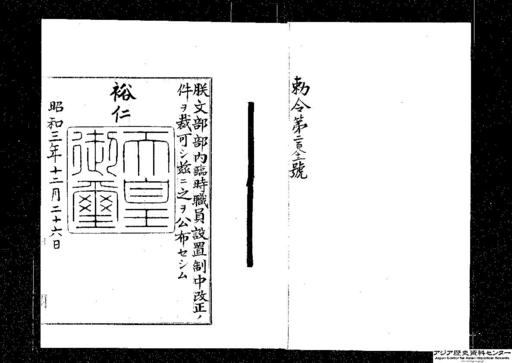 勅令第 號
朕文部部内臨時職員設置制中改正ノ
件ヲ裁可シ茲ニ之ヲ公布セシム
裕仁
天皇
御璽
昭和三年十二月二十六日
アジア歴史資料センター
Japan Center for Asian Historical Records